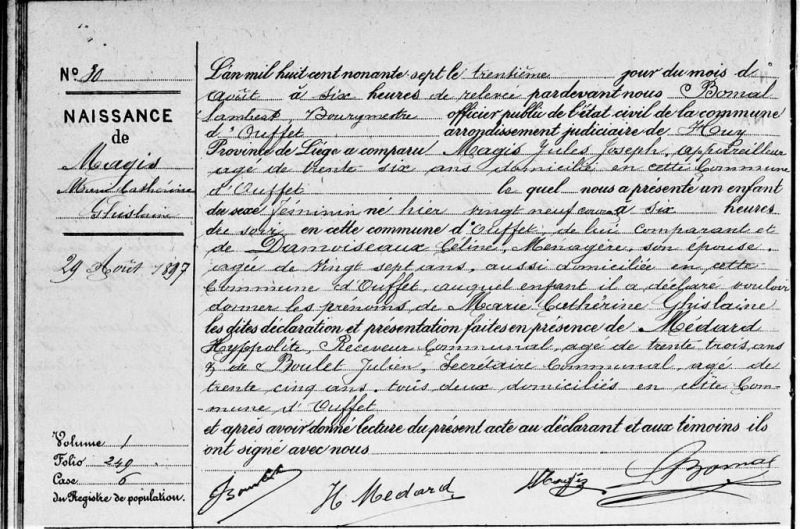 N° 30
NAISSANCE
de
Magis
Marie Catherine
Ghislaine
29 Août 1897
Volume 1
Folio 249
Case 6
du Registre de population.
L'an mil huit cent nonante sept le trentième jour du mois d'
Août à six heures de relevé pardevant nous Bomal
Lambert, Bourgmestre officier public de l'état civil de la commune
d'Ouffet arrondissement judiciaire de Huy
Province de Liége a comparu Magis Jules Joseph, appareilleur
agé de trente six ans domicilié en cette Commune
d'Ouffet le quel nous a présenté un enfant
du sexe féminin né hier vingt neuf courant à six heures
du soir en cette commune d'Ouffet, de lui comparant et
de Damoiseaux Céline, Ménagère, son épouse,
agée de vingt sept ans, aussi domiciliée en cette
Commune d'Ouffet, auquel enfant il a déclaré vouloir
donner les prénoms de Marie Cathérine Ghislaine
les dites déclaration et présentation faites en présence de Médard
Hyppolite, Receveur Communal, agé de trente trois ans
& de Boulet Julien, Secrétaire Communal, agé de
trente cinq ans, tous deux domiciliés en cette Com-
mune d'Ouffet
et après avoir donné lecture du présent acte au déclarant et aux témoins ils
ont signé avec nous
JBoulet
H Médard
JMagis
LBomal